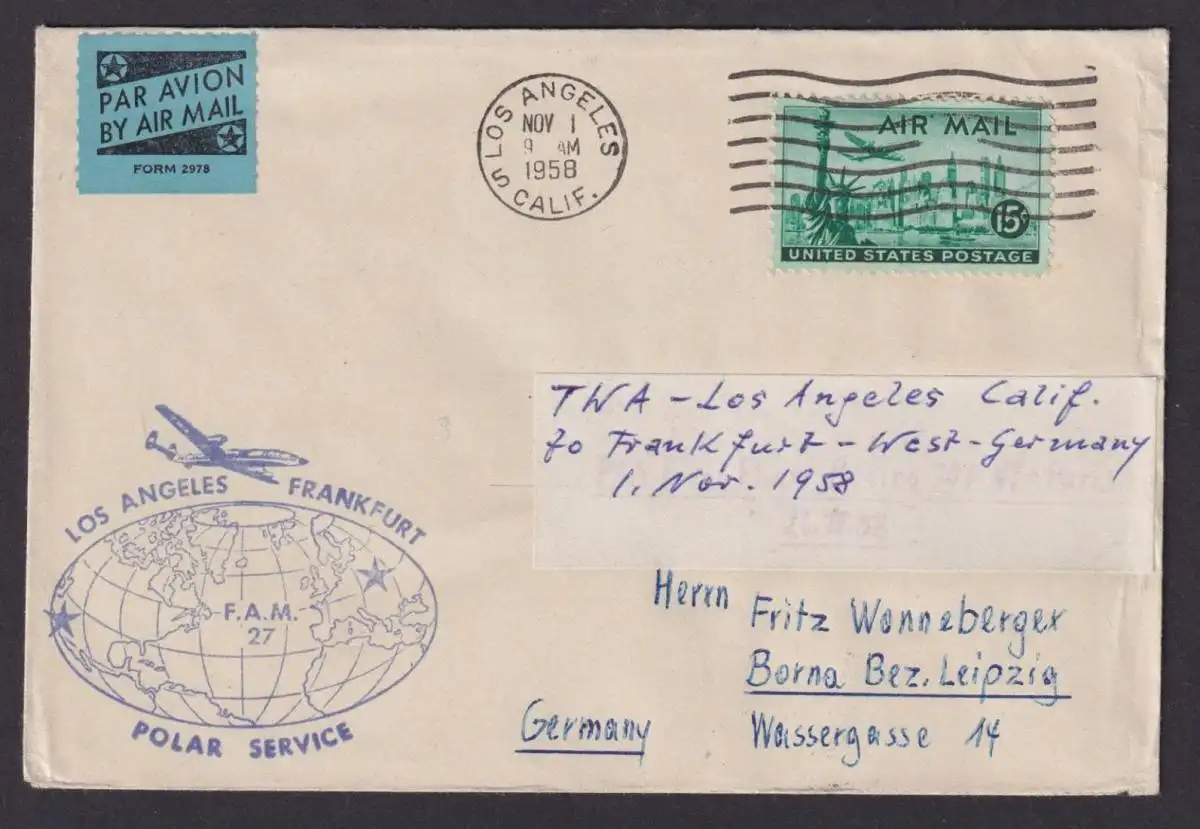 PAR AVION
BY AIR MAIL
FORM 2978
LOS ANGELES
5 CALIF.
NOV 1
9 AM
1958
AIR MAIL
15¢
UNITED STATES POSTAGE
TWA - Los Angeles Calif.
to Frankfurt - West-Germany
1. Nov. 1958
LOS ANGELES FRANKFURT
F.A.M.
27
POLAR SERVICE
Herrn Fritz Wonneberger
Borna Bez. Leipzig
Wassergasse 14
Germany